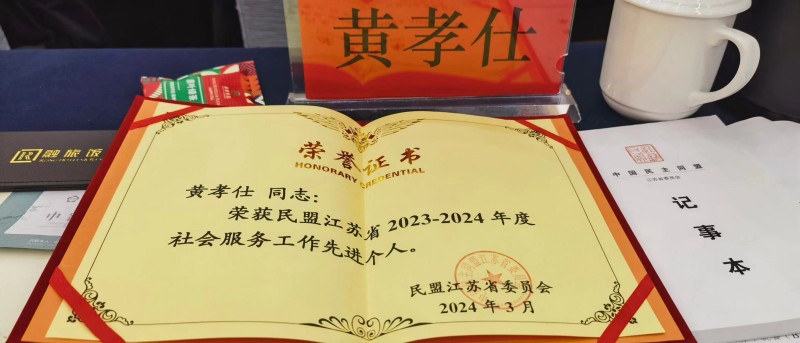 黄孝仕
荣誉证书
HONORARY CREDENTIAL
黄孝仕 同志：
荣获民盟江苏省 2023-2024 年度
社会服务工作先进个人。
民盟江苏省委员会
2024 年 3 月
融旅饭
中国民主同盟
江苏省委员会
记事本